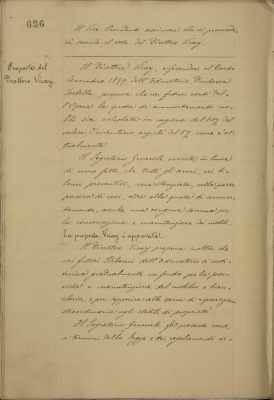 636
Il Vice Presidente assicura che si provvederà
in merito il voto del Direttore Vivay.
Proposte del
Direttore Vivay.
Il Direttore Vivay, riferendosi al Conto
Consuntivo 1897 dell'Educatorio Duchessa
Isabella propone che nei futuri conti del-
l'Opera la quota di ammortamento mo-
bili sia calcolata in ragione del 10% del
valore d'inventario, anziché del 5% come è at-
tualmente.
Il Segretario Generale avverte, in linea
di mero fatto, che tutti gli anni, nei bi-
lanci preventivi, viene stanziata, nella parte
passiva di essi, oltre alla quota di ammor-
tamento, anche una congrua somma per
la conservazione e manutenzione dei mobili.
La proposta Vivay è approvata.
Il Direttore Vivay propone inoltre che
nei futuri bilanci dell'Educatorio si costi-
tuisca gradualmente un fondo per la prov-
vista e manutenzione del mobilio e bian-
cheria, e per sopperire alle spese di riparazioni
straordinarie agli stabili di proprietà.
Il Segretario Generale fa presente come,
a termini della legge e dei regolamenti vi-